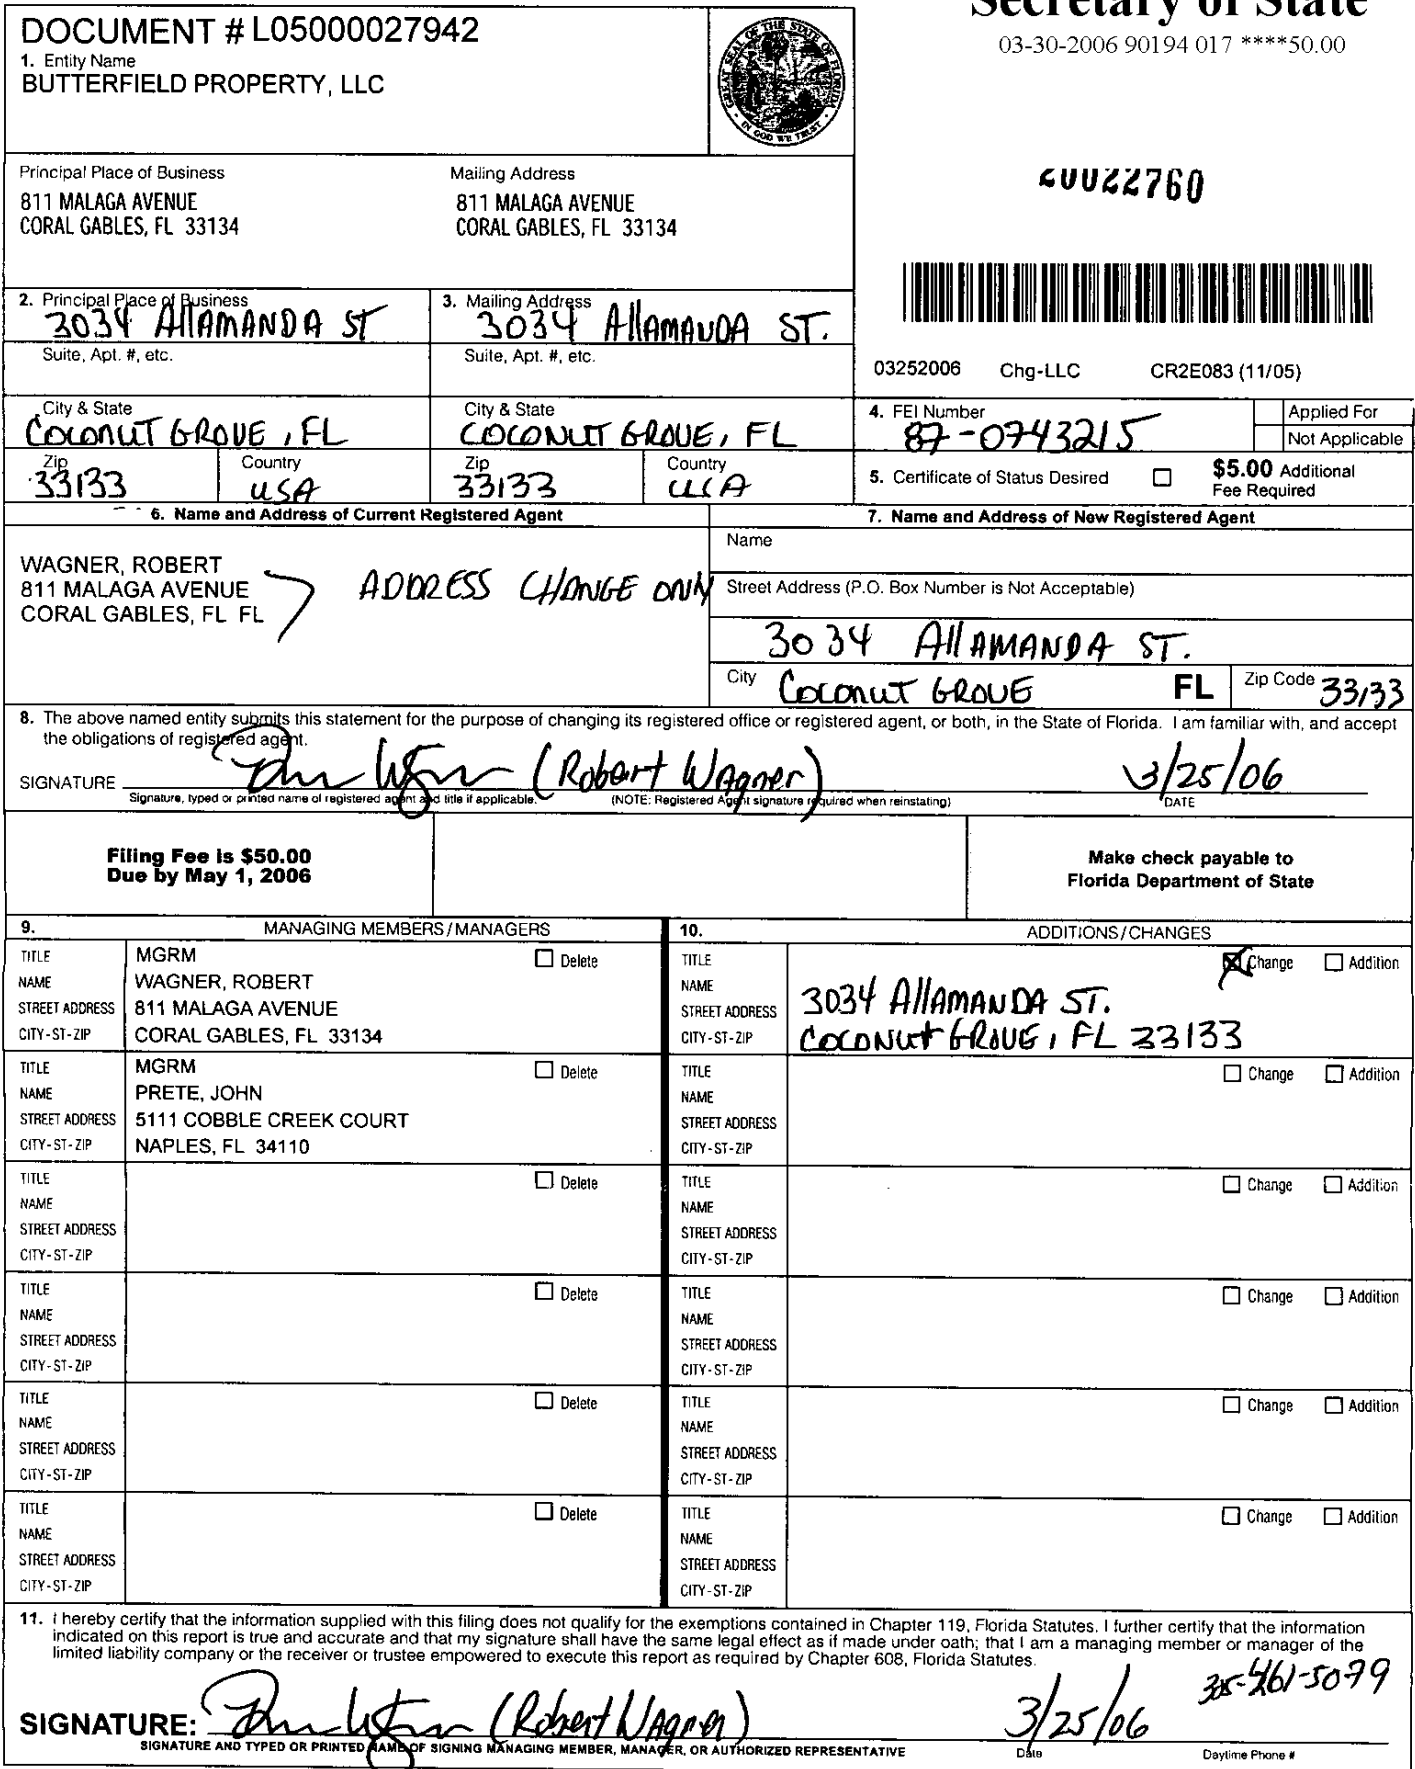 Secretary of State
03-30-2006 90194 017 ****50.00
DOCUMENT # L05000027942
1. Entity Name
BUTTERFIELD PROPERTY, LLC
GREAT SEAL OF THE STATE OF FLORIDA
IN GOD WE TRUST
20022760
Principal Place of Business
811 MALAGA AVENUE
CORAL GABLES, FL 33134
Mailing Address
811 MALAGA AVENUE
CORAL GABLES, FL 33134
2. Principal Place of Business
3034 AllAMANDA ST
Suite, Apt. #, etc.
3. Mailing Address
3034 AllAMANDA ST.
Suite, Apt. #, etc.
03252006 Chg-LLC CR2E083 (11/05)
City & State
COCONUT GROVE, FL
City & State
COCONUT GROVE, FL
4. FEI Number
87-0743215
Applied For
Not Applicable
Zip
33133
Country
USA
Zip
33133
Country
USA
5. Certificate of Status Desired
$5.00 Additional
Fee Required
6. Name and Address of Current Registered Agent
WAGNER, ROBERT
811 MALAGA AVENUE
CORAL GABLES, FL FL
ADDRESS CHANGE ONLY
7. Name and Address of New Registered Agent
Name
Street Address (P.O. Box Number is Not Acceptable)
3034 AllAMANDA ST.
City COCONUT GROVE FL Zip Code 33133
8. The above named entity submits this statement for the purpose of changing its registered office or registered agent, or both, in the State of Florida. I am familiar with, and accept
the obligations of registered agent.
SIGNATURE (Robert Wagner) 3/25/06
Signature, typed or printed name of registered agent and title if applicable. (NOTE: Registered Agent signature required when reinstating) DATE
Filing Fee is $50.00
Due by May 1, 2006
Make check payable to
Florida Department of State
9. MANAGING MEMBERS/MANAGERS
10. ADDITIONS/CHANGES
TITLE MGRM Delete
NAME WAGNER, ROBERT
STREET ADDRESS 811 MALAGA AVENUE
CITY-ST-ZIP CORAL GABLES, FL 33134
TITLE Change Addition
NAME
STREET ADDRESS 3034 AllAMANDA ST.
CITY-ST-ZIP COCONUT GROVE, FL 33133
TITLE MGRM Delete
NAME PRETE, JOHN
STREET ADDRESS 5111 COBBLE CREEK COURT
CITY-ST-ZIP NAPLES, FL 34110
TITLE Change Addition
NAME
STREET ADDRESS
CITY-ST-ZIP
TITLE Delete
NAME
STREET ADDRESS
CITY-ST-ZIP
TITLE Change Addition
NAME
STREET ADDRESS
CITY-ST-ZIP
TITLE Delete
NAME
STREET ADDRESS
CITY-ST-ZIP
TITLE Change Addition
NAME
STREET ADDRESS
CITY-ST-ZIP
TITLE Delete
NAME
STREET ADDRESS
CITY-ST-ZIP
TITLE Change Addition
NAME
STREET ADDRESS
CITY-ST-ZIP
TITLE Delete
NAME
STREET ADDRESS
CITY-ST-ZIP
TITLE Change Addition
NAME
STREET ADDRESS
CITY-ST-ZIP
11. I hereby certify that the information supplied with this filing does not qualify for the exemptions contained in Chapter 119, Florida Statutes. I further certify that the information
indicated on this report is true and accurate and that my signature shall have the same legal effect as if made under oath; that I am a managing member or manager of the
limited liability company or the receiver or trustee empowered to execute this report as required by Chapter 608, Florida Statutes.
SIGNATURE: (Robert Wagner) 3/25/06 305-461-5079
SIGNATURE AND TYPED OR PRINTED NAME OF SIGNING MANAGING MEMBER, MANAGER, OR AUTHORIZED REPRESENTATIVE Date Daytime Phone #